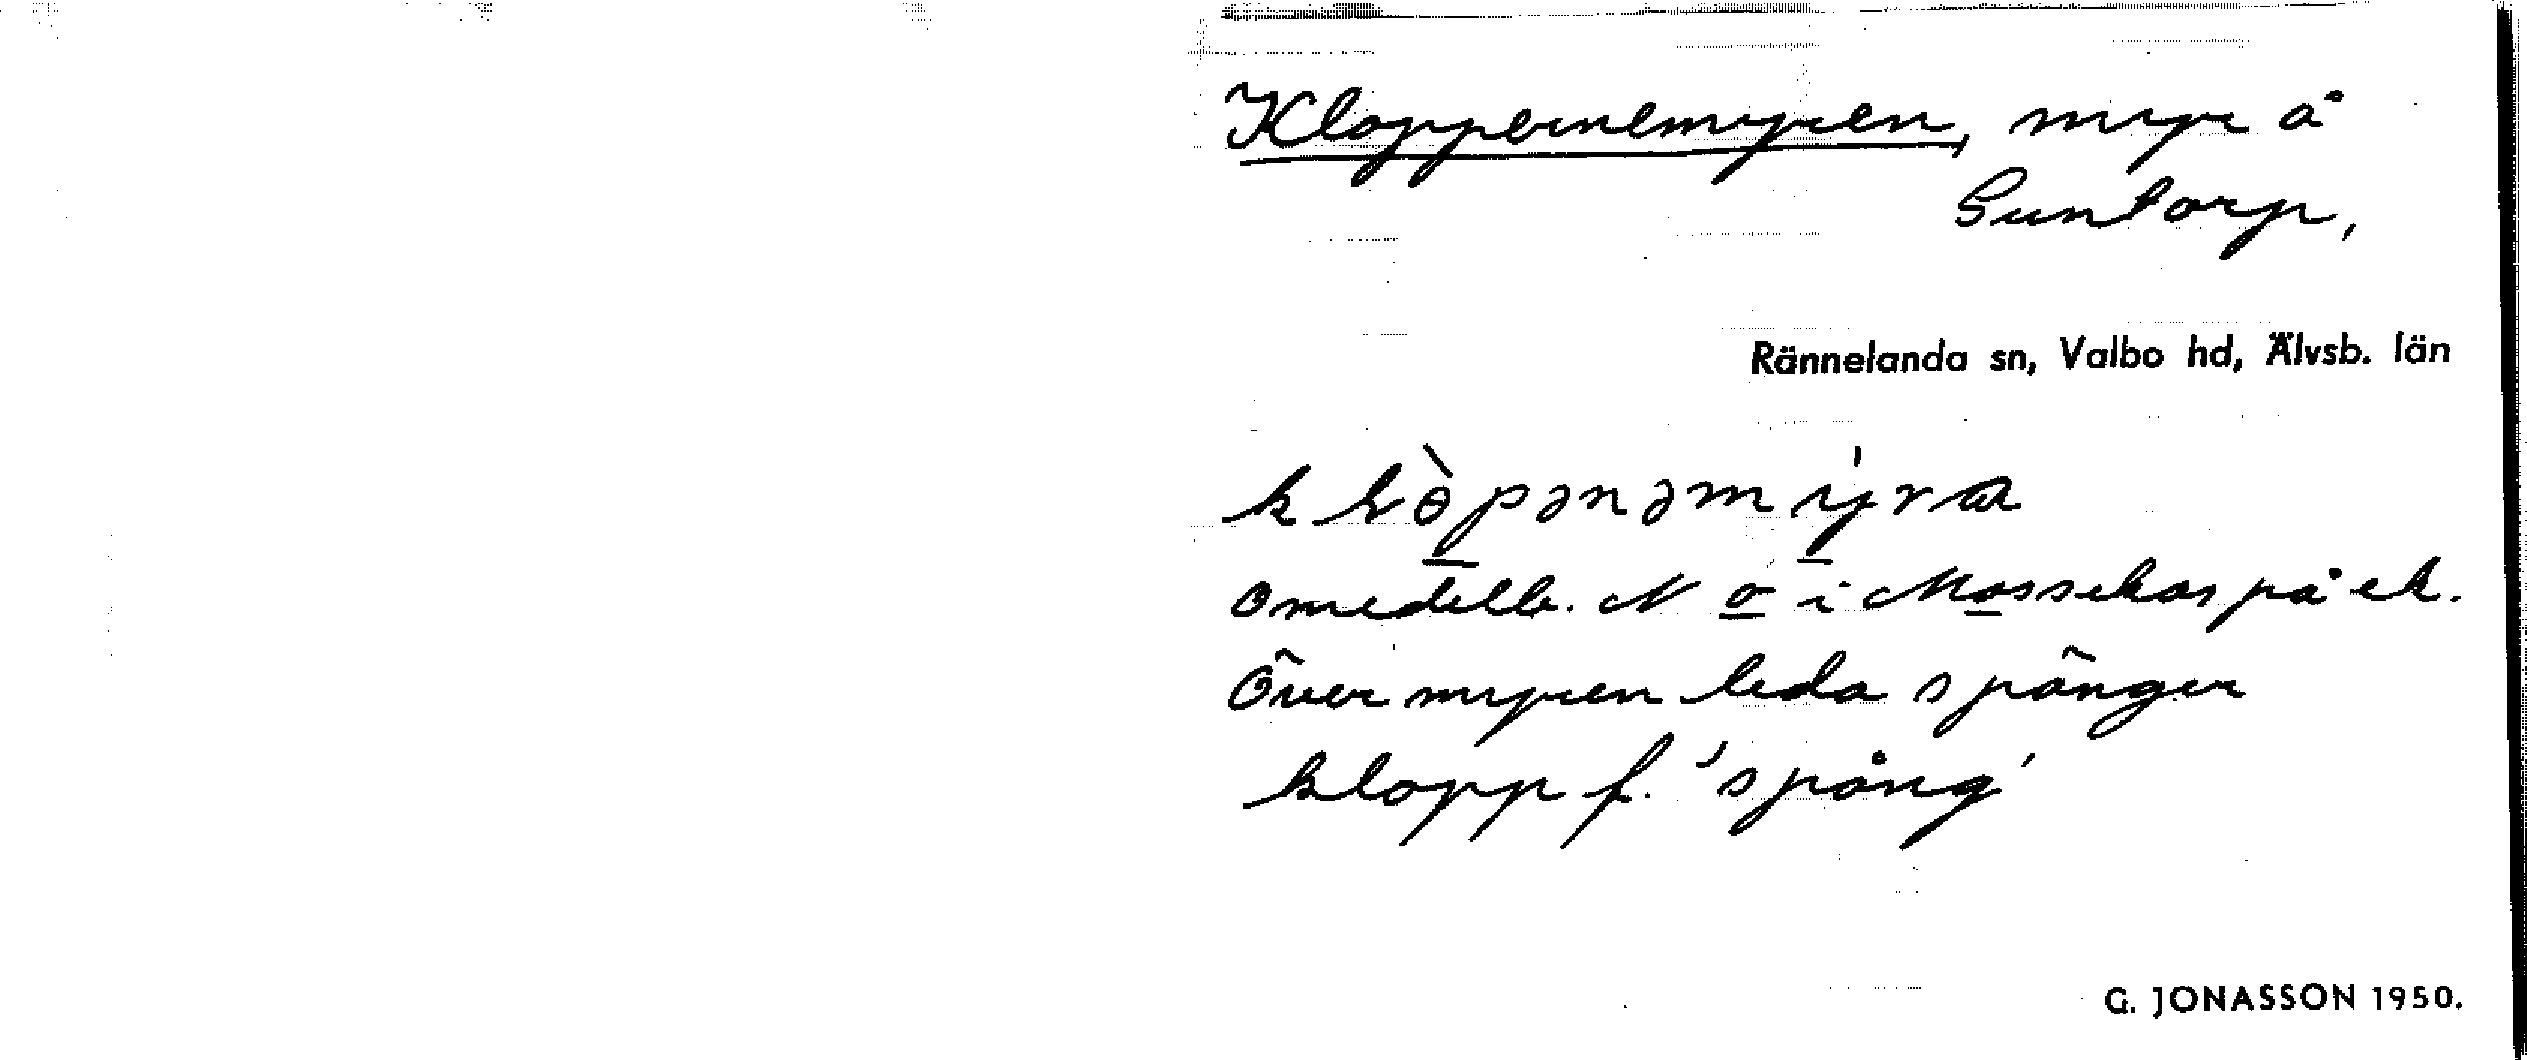 Kloppernemyren, myr å
Suntorp,
Rännelanda sn, Valbo hd, Älvsb. län
omedelb. N o i Mossekas på ek.
Över myren leda spänger
klopp f. 'spång'
G. JONASSON 1950.